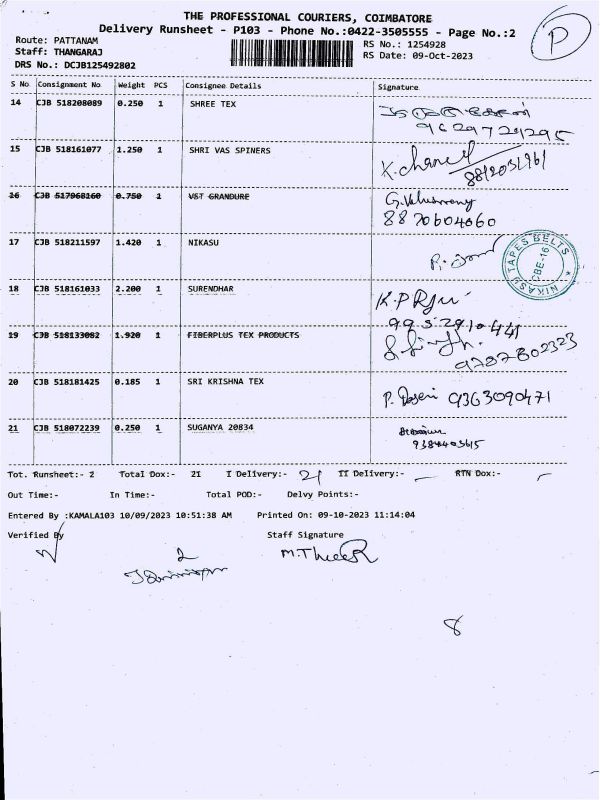 THE PROFESSIONAL COURIERS, COIMBATORE
Delivery Runsheet - P103 - Phone No.:0422-3505555 - Page No.:2
P
Route: PATTANAM
RS No.: 1254928
Staff: THANGARAJ
RS Date: 09-Oct-2023
DRS No.: DCJB125492802
S No Consignment No Weight PCS Consignee Details Signature
14 CJB 518208089 0.250 1 SHREE TEX
9629729295
15 CJB 518161077 1.250 1 SHRI VAS SPINERS
16 CJB 517968160 0.750 1 VST GRANDURE
8870604060
17 CJB 518211597 1.420 1 NIKASU
NIKASU TAPES BELTS
CBE-16
18 CJB 518161033 2.200 1 SURENDHAR
K.P Rju
9952910441
19 CJB 518133082 1.920 1 FIBERPLUS TEX PRODUCTS
9787802323
20 CJB 518181425 0.185 1 SRI KRISHNA TEX
9363090471
21 CJB 518072239 0.250 1 SUGANYA 20834
Tot. Runsheet:- 2 Total Dox:- 21 I Delivery:- 21 II Delivery:- RTN Dox:-
Out Time:- In Time:- Total POD:- Delvy Points:-
Entered By :KAMALA103 10/09/2023 10:51:38 AM Printed On: 09-10-2023 11:14:04
Verified By Staff Signature
2
8